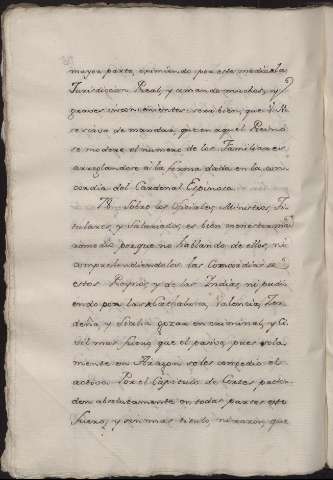 mayor parte, oprimiendo por este medio la
Jurisdiccion Real, y amando muchos, y
graves inconvenientes sera bien, que V. M.
se sirva de mandar, que en aquel Reino
se modere el numero de los Familiares
arreglandose á la forma dada en la con-
cordia del Cardenal Espinosa.
Sobre los Oficiales, Ministros, Ti-
tulares, y Salariados, es bien menester
remedio porque no hablando de ellos, ni
comprehendiendolos las Concordias de
estos Reynos, y de las Indias, ni pudi-
endo por las de Cataluña, Valencia, Zer-
deña, y Sicilia gozar en criminal, y Ci-
vil mas fuero que el pasivo, pues sola-
mente en Aragon se les concedio el
activo. Por el Capitulo de Cortes, preten-
den absolutamente en todas partes este
fuero, y sin mas titulo, ni razon, que